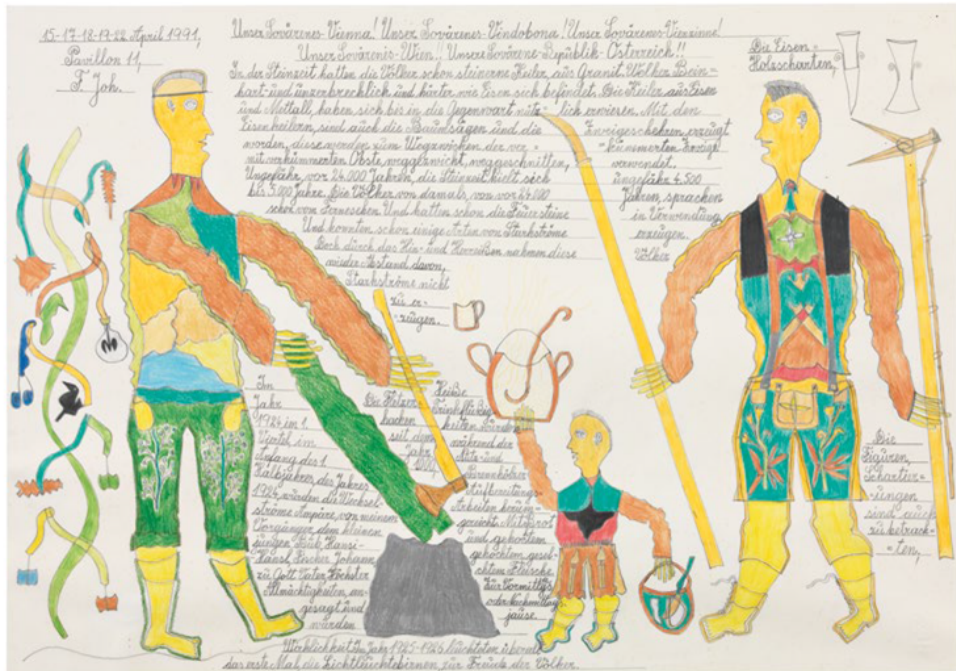 15-17-18-19-22 April 1991,
Pavillon 11,
F. Joh.
Unser Sovärenes-Vienna! Unser Sovärenes-Vindobona! Unser Sovärenes-Vienzinne!
Unser Sovärenis-Wien!! Unsere Sovärene-Republik-Österreich!!
In der Steinzeit hatten die Völker schon steinerne Keiler, aus Granit. Völker Bein-
hart und unzerbrechlich und härter, wie Eisen sich befindet. Die Keiler aus Eisen
und Mettall, haben sich bis in die Gegenwart nütz- lich erwiesen. Mit den
Eisenkeilern, sind auch die Baumsägen und die Zweigescheren, erzeugt
worden, diese werden zum Wegzwicken der ver- kümmerten
mit verkümmerten Obste, weggezwickt, weggeschnitten, verwendet.
Ungefähr, vor 24.000 Jahren, die Steinzeit hielt sich ungefähr 4.500
bis 5.000 Jahre. Die Völker von damals, von vor 24000 Jahren, sprachen
schon von Fernsehen. Und hatten schon die Feuersteine in Verwendung
Und konnten schon einige Arten von Starkströme erzeugen.
Doch durch das Hin- und Herreißen nahmen diese Völker
wieder Abstand davon,
Starkströme nicht
zu er-
zeugen.
Die Eisen-
Holzscharten,
Im
Jahr
1924 im 1
Viertel im
Anfang des 1
Halbjahres, des Jahres
1924, wurden die Wechsel-
ströme Ampäre, von meinem
Vorgänger dem kleinen
jungen Bub, Hansi-
Hansl, Johann,
zu Gott Vater, Höchster
Allmächtigkeiten, an-
gesagt und
wurden
Die
hacken
seit dem
Jahr
1000
Heiße
Trinkflüßig-
keiten wurden
während der
und
Aufbereitungs-
Arbeiten herum-
gereicht. Mit Brot
und gekochtem
gekochtem, gesel-
chtem Fleische
Zur Vormittags
oder Nachmittags
jause.
Die
Figuren,
Schattier-
ungen
sind auch
zu betrach-
ten,
Wirklichkeit. Im Jahr 1925-1926 leuchteten überall
das erste Mal, die Lichtleuchtebirnen, zur Freude der Völker.